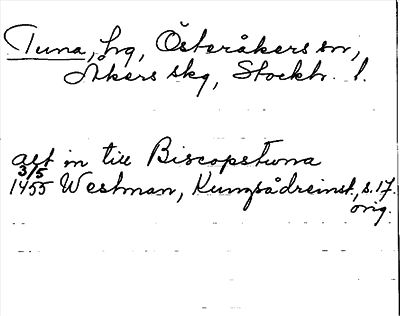 Tuna, hg, Österåkers sn,
Åkers skg, Stockh. l.
alt in till Biscopstuna
3/5
1455 Westman, Kungsådreinst., s. 17.
orig.